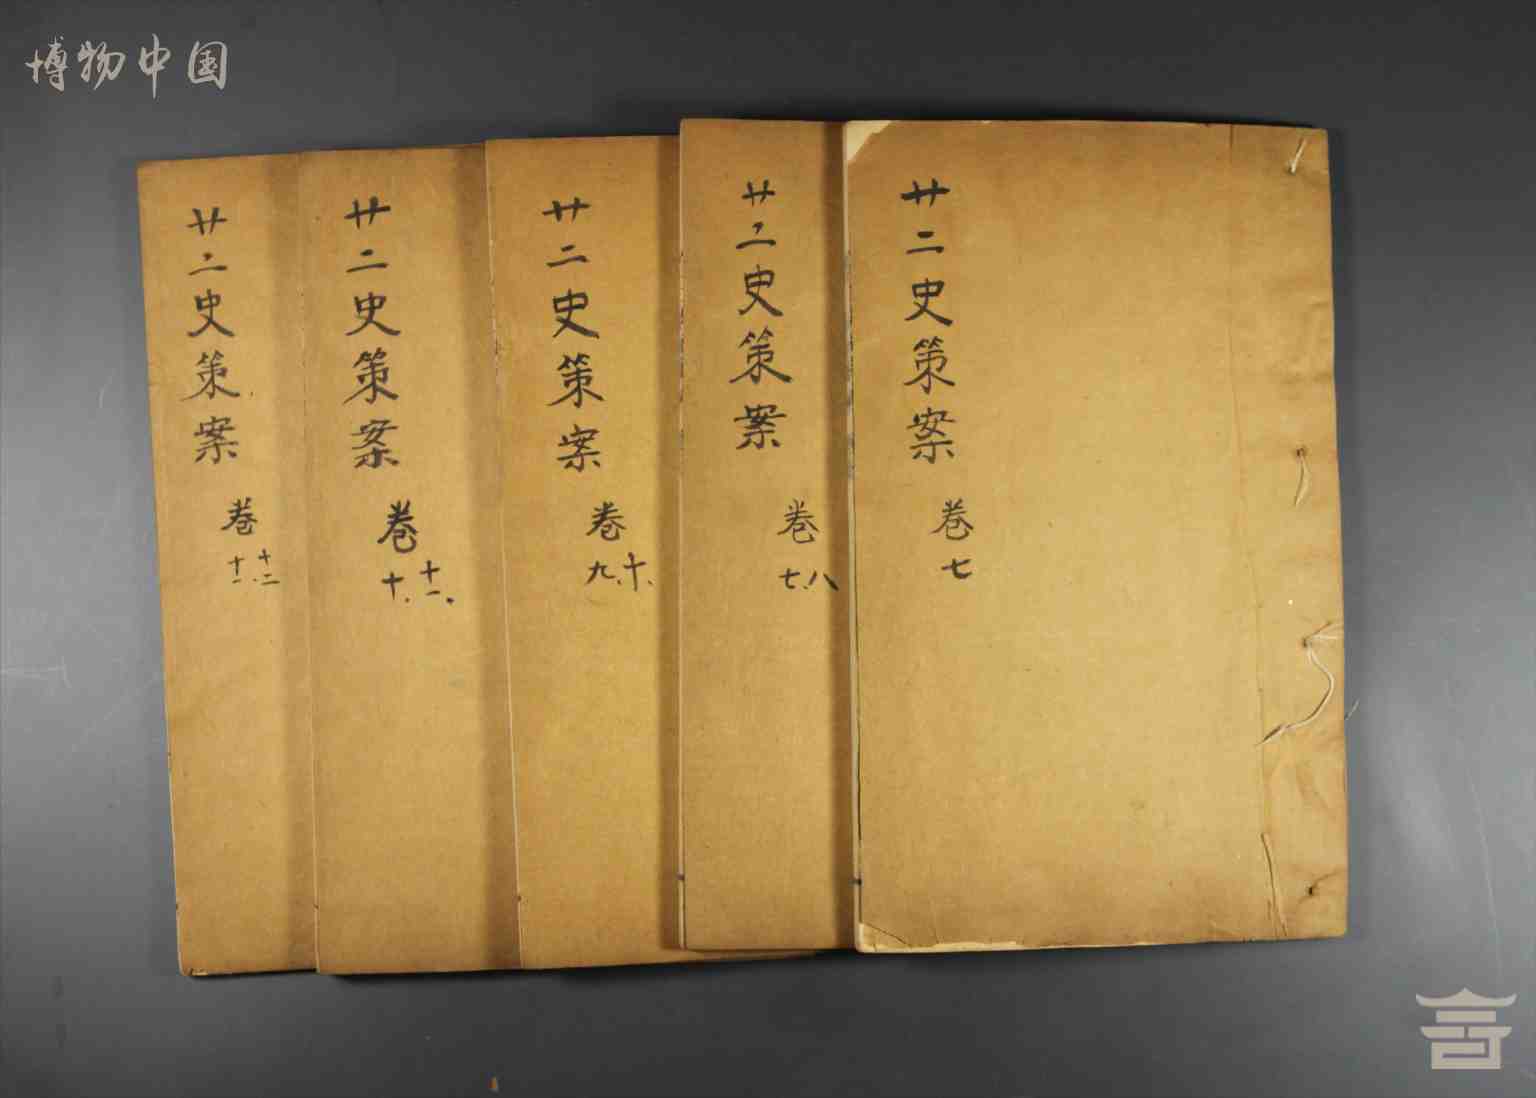 博物中国
廿二史策案
卷
七
廿二史策案
卷
七、八
廿二史策案
卷
九、十、
廿二史策案
卷
十、十一、
廿二史策案
卷
十一、十二